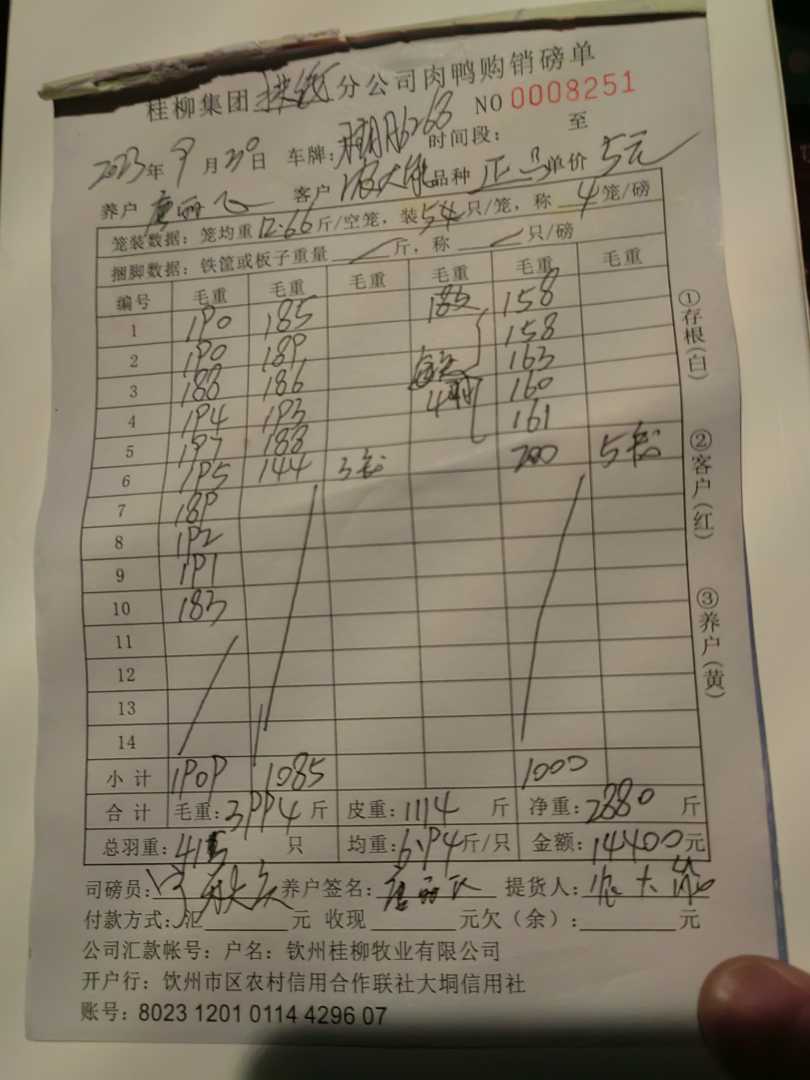 桂柳集团 分公司肉鸭购销磅单
NO 0008251
2023年 9月20日 车牌: 时间段: 至
养户 唐丽飞 客户 品种 正 单价 5元
笼装数据:笼均重 12.66 斤/空笼,装 54 只/笼,称 4 笼/磅
捆脚数据:铁筐或板子重量 斤,称 只/磅
编号 毛重 毛重 毛重 毛重 毛重 毛重
1 190 185 158
2 190 189 158
3 188 186 163
4 194 193 160
5 197 188 161
6 195 144 3 200 5
7 189
8 192
9 191
10 183
11
12
13
14
小计 1909 1085 1000
合计 毛重:3994 斤 皮重:1114 斤 净重:2880 斤
总羽重:415 只 均重:6.94 斤/只 金额:14400 元
司磅员: 养户签名:唐丽飞 提货人:
付款方式:汇 元 收现 元欠(余): 元
公司汇款帐号:户名:钦州桂柳牧业有限公司
开户行:饮州市区农村信用合作联社大垌信用社
账号:8023 1201 0114 4296 07
①存根(白)
②客户(红)
③养户(黄)